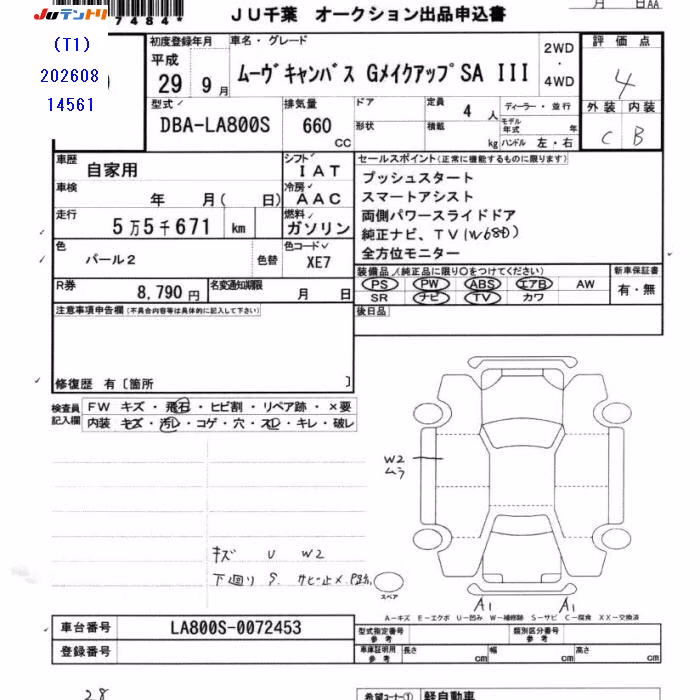 JUテントリ
7484*
JU千葉 オークション出品申込書
月 日AA
(T1)
202608
14561
初度登録年月
平成
29 9月
車名・グレード
ムーヴキャンバス GメイクアップSA III
2WD
・
4WD
評価点
4
外装 内装
C B
型式
DBA-LA800S
排気量
660 CC
ドア
形状
定員 4 人
積載 kg
ディーラー・並行
モデル年式 年
ハンドル 左・右
車歴 自家用
シフト IAT
車検 年 月( 日)
冷房 AAC
走行 5万5千671 km
燃料 ガソリン
色 パール2 色替
色コード XE7
R券 8,790円
名変通知期限 月 日
セールスポイント(正常に機能するものに限ります)
プッシュスタート
スマートアシスト
両側パワースライドドア
純正ナビ、TV(W68D)
全方位モニター
装備品/純正品に限り○をつけてください
PS PW ABS エアB AW
SR ナビ TV カワ
新車保証書
有・無
後日品
注意事項申告欄(不具合内容等は具体的に記入して下さい)
修復歴 有〔箇所 〕
検査員
記入欄
FW キズ・飛石・ヒビ割・リペア跡・×要
内装 キズ・汚レ・コゲ・穴・スレ・キレ・破レ
W2
ムラ
キズ U W2
下廻り S サビ止メ
スペア
A1 A1
A-キズ E-エクボ U-凹み W-補修跡 S-サビ C-腐食 XX-交換済
車台番号 LA800S-0072453
登録番号
型式指定番号
参考
類別区分番号
参考
車庫証明用
参考
長さ cm 幅 cm 高さ cm
28
希望コーナー① 軽自動車